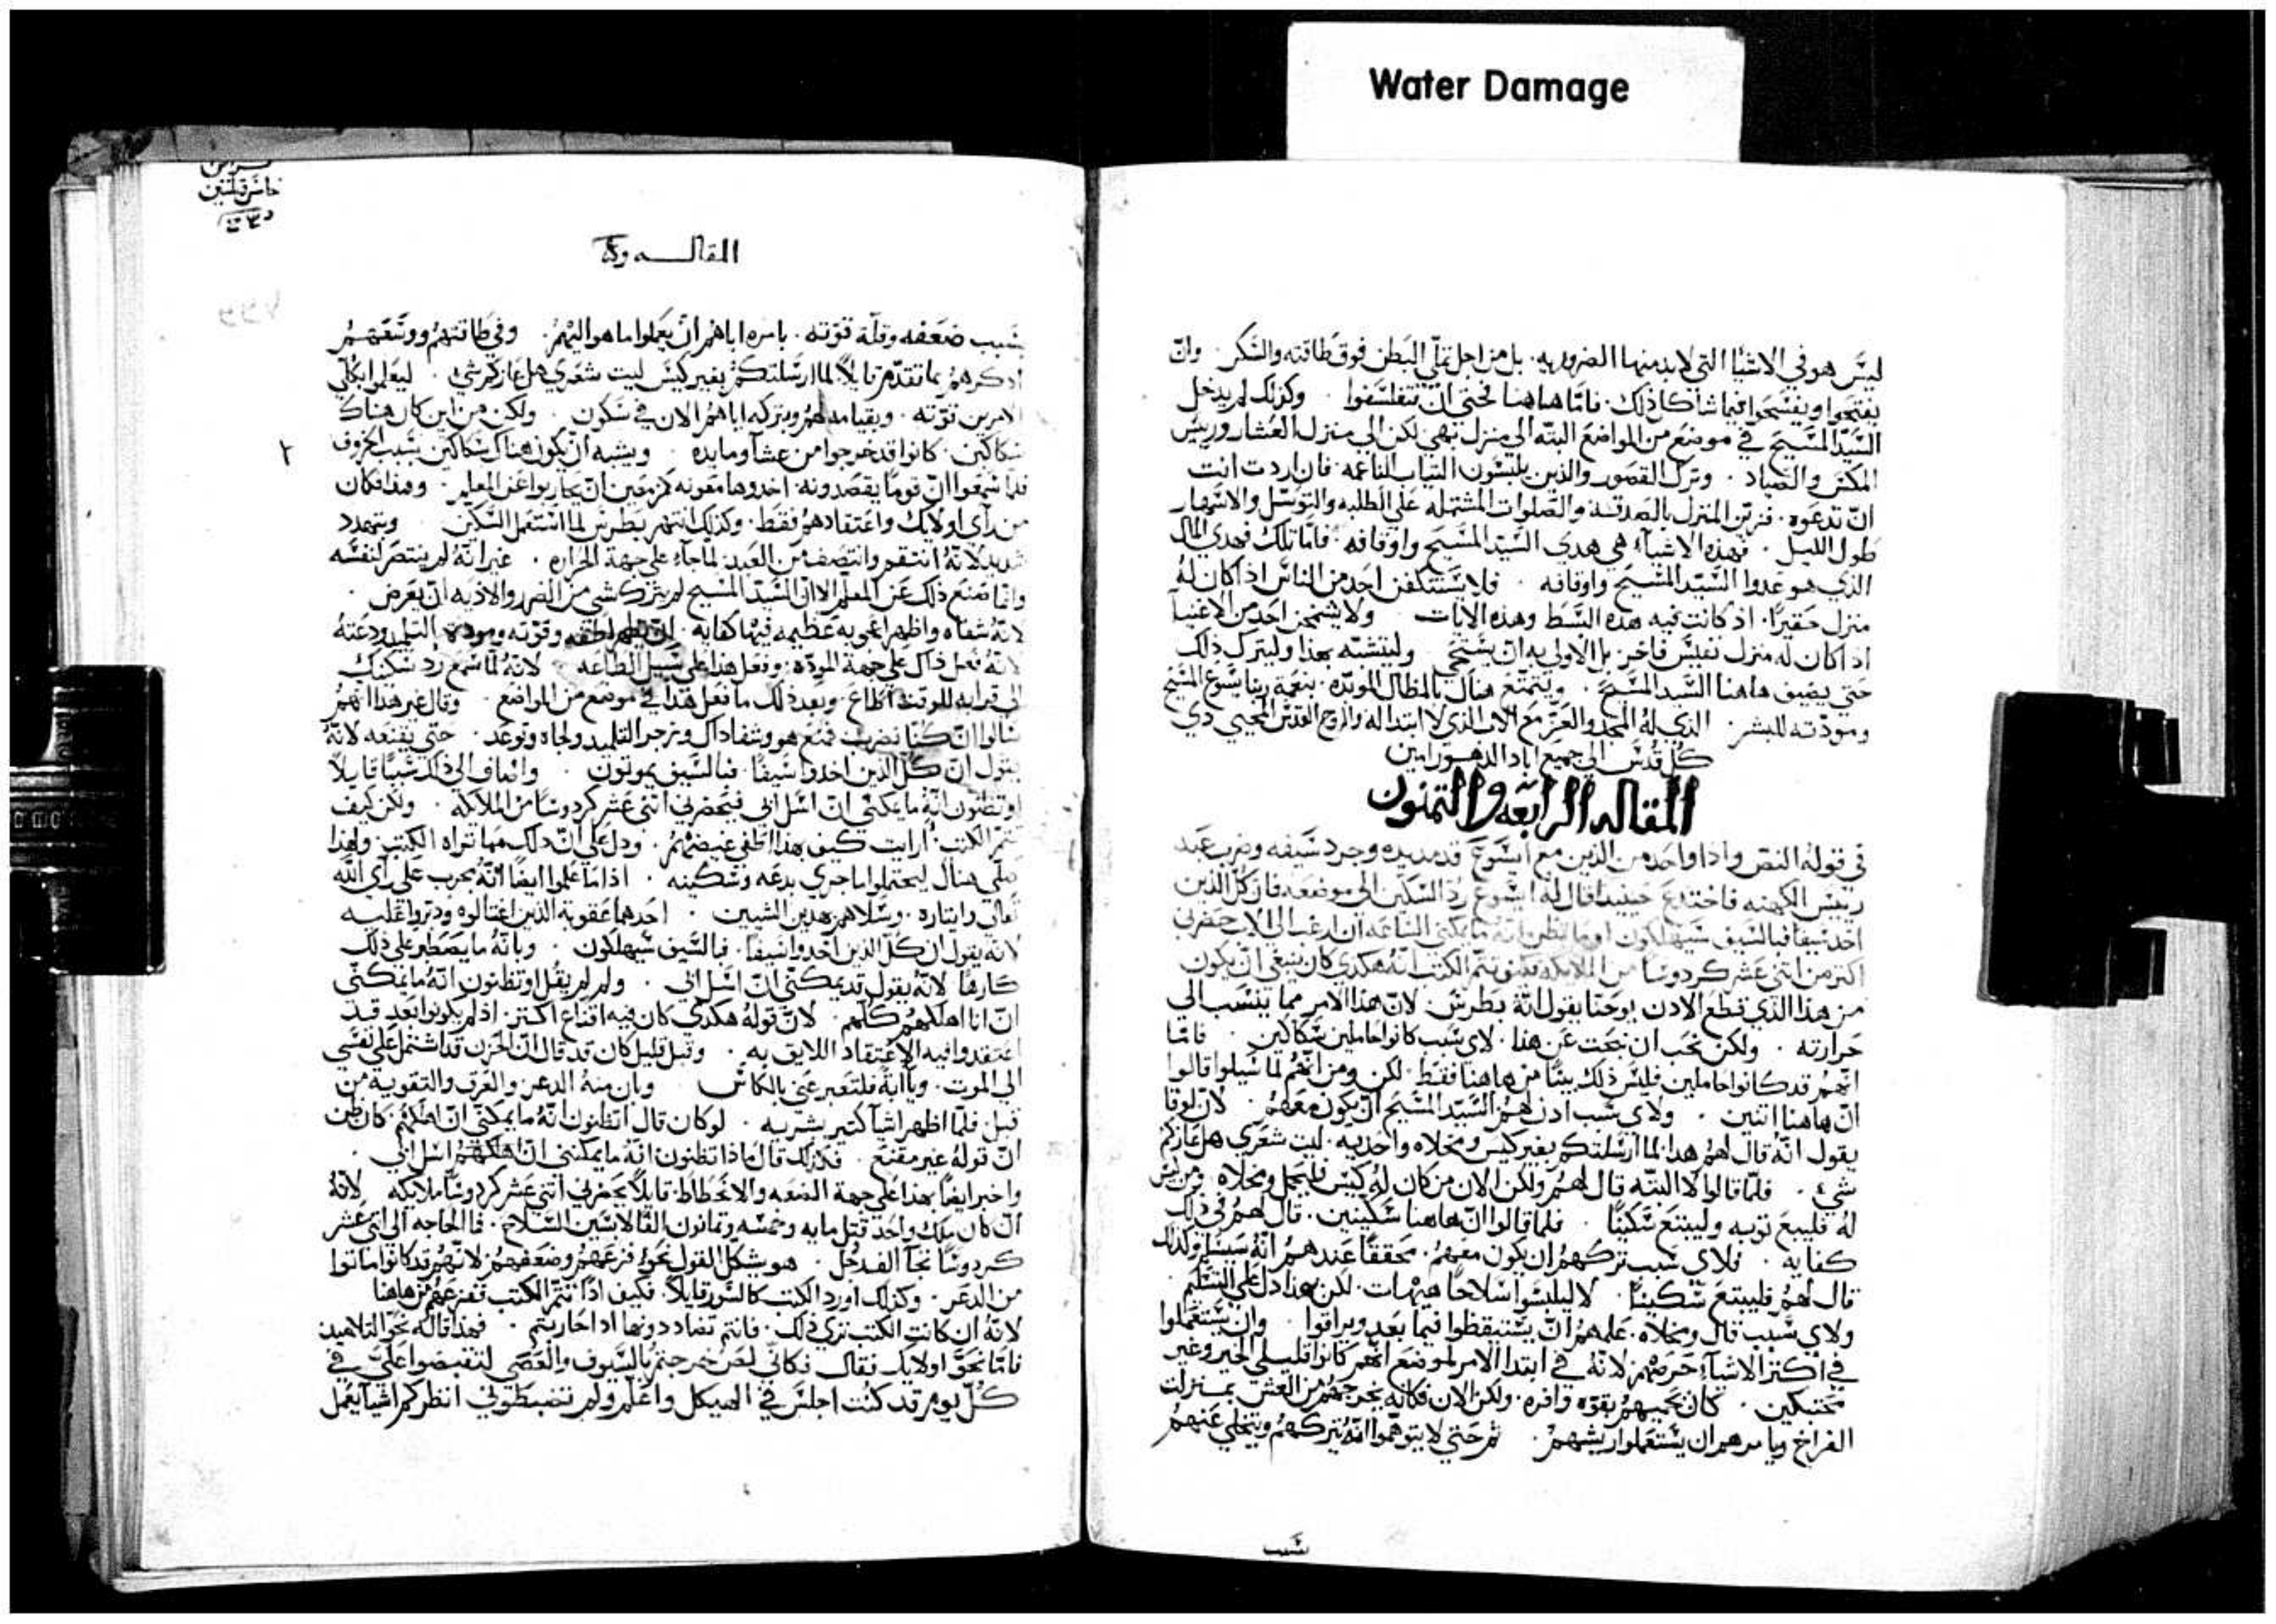 Water Damage
ليس هو في الاشيا التي لا بد منها الضروريه. بل من اجل تملّي البطن فوق طاقته والسكر. وان
يفتحوا ويفسحوا فيما شاكل ذلك. فامّا هاهنا نحتى ان تتفلسفوا. وكذلك لم يدخل
السيّد المسيح في موضع من المواضع البته الي منزل بهي لكن الي منزل العشار وريس
المكس والصياد. وترك القصور والذين يلبسون الثياب الناعمه. فان اردت انت
ان تدعوه. فزين المنزل بالصدقه والصلوات المشتمله علي الطلبه والتوسّل والاسهار
طول الليل. فهذه الاشيآء هي هدى السيّد المسيح واوقافه. فامّا تلك فهدي المال
الذي هو عدوا السيّد المسيح واوقافه. فلا يستنكفن احد من الناس اذا كان له
منزل حقيرًا. اذ كانت فيه هذه البسط وهذه الالات ولا يشمخن احد من الاغنيآ
اذا كان له منزل نفيس فاخر. بل الاولي به ان يستحي وليتشبّه بهذا وليترك ذلك
حتي يضيف هاهنا السّيد المسيح. ويتمتع هناك بالمظال الموبّده. بنعمة ربنا يسوع المسيح
ومودّته للبشر. الذي له المجد والعزّ مع الاب الذي لا ابتدا له والروح القدس المحيي دي
كل قدس الي جميع اباد الدهور امين
المقاله الرابعه والتمنون
في قوله النص واذا واحد من الذين مع ايسوع قد مد يده وجرد سيفه وضرب عبد
رييس الكهنه فاختدع حينيذ قال له ايسوع ردّ السكين الي موضعه فان كل الذين
اخد سيفا فبالسيف سيهلكون اوما تظن انه ما يمكني الساعه ان ارغب الي الاب حضرني
اكتر من اتني عشر كردوسًا من الملايكه فكيف تتم الكتب انه هكدي كان ينبغي ان يكون
من هذا الذي قطع الادن يوحنا يقول انّه بطرس. لان هذا الامر مما ينسب الي
حرارته. ولكن نحب ان نبحت عن هذا. لاي سبب كانوا حاملين سكاكين. فامّا
انهم قد كانوا حاملين فليس ذلك بينًا من هاهنا فقط. لكن ومن انهم لما سيلوا قالوا
ان هاهنا اتنين. ولاي سبب ادن لهم السّيد المسيح ان يكون معهم. لان لوقا
يقول انّه قال لهم هدا. لما ارسلتكم بغير كيس ومخلاه واحديه. ليت شعري هل عازكم
شيء. فلمّا قالوا لا البته قال لهم ولكن الان من كان له كيس فليحمل ومخلاه ومن ليس
له فليبع توبه وليبتع سكينًا. فلما قالوا ان هاهنا سكينين. قال لهم في ذلك
كفايه. فلاي سبب تركهم ان يكون معهم. محققًا عندهم انه سيسلم ولذلك
قال لهم فليبتع سكينًا. لا ليلبسوا سلاحًا هيهات. لكن بهدا دل علي التسليم
ولاي سبب قال ومخلاه. علمهم ان يستيقظوا فيما بعد ويراقوا. وان يستعملوا
في اكتر الاشيآء حرصهم. لانه في ابتدا الامر لموضع انهم كانوا قليلي الخبر وغير
محتنكين. كان يحميهم بقوّه وافره. ولكن الان فكانه يخرجهم من العش بمنزلت
الفراخ ويامرهم ان يستعملوا ريشهم. ثم حتي لا يتوهموا انه يتركهم ويتخلي عنهم
المقاله
بسبب ضعفه وقلّة قوّته. بامره اياهم ان يعملوا ما هو اليهم. وفي طاقتهم ووسعهم
ادكرهم بما تقدّم قايلاً لما ارسلتكم بغير كيس ليت شعري هل عازكم شي. ليعلموا بكلّي
الامرين قوّته. وبقيامه لهم وبتركه اياهم الان في سكون. ولكن من اين كان هناك
سكاكين. كانوا قد خرجوا من عشآ ومايده ويشبه ان يكون هناك سكاكين بسبب الخروف
فلمّا سمعوا ان قومًا يقصدونه. اخدوها معونه مزمعين ان يحاربوا عن المعلم. وهذا فكان
من رأي اولايك واعتقادهم فقط. وكذلك انتهر بطرس لما استعمل السكين. وبتهدد
شديد لانه انتقم وانتصف من العبد لماجآء علي جهة الحراره. غير انه لم ينتصر لنفسه
وانما تمنع ذلك عن المعلّم الا ان السّيد المسيح لم يترك شي من الضرر والاذيه ان يعرض.
لانه شفاه واظهر اعجوبه عظيمه فيها كفايه. ان تظهر لطفه وقوّته ومودة التلميد ودعته
لانّه فعل ذاك علي جهة المودّه. وفعل هذا علي سبيل الطاعه لانه لما سمع رد سكينك
الي قرابه للوقت اطاع. وبعد ذلك ما فعل هذا في موضع من المواضع. وقال غير هذا انهم
سالوا ان كنا نضرب فمنع هو وشفا ذاك وزجر التلميد ولجاه وتوعد. حتي يقنعه لانه
يقول ان كل الذين اخدوا سيفًا. فبالسيف يموتون. واضاف الي ذلك شيًا قايلاً
او تظنون انه ما يمكني ان اسل ابي فيحضر لي اتني عشر كردوسًا من الملايكه. ولكن كيف
تتم الكتب. ارايت كيف بهذا اطفي غيضهم. ودل علي ان ذلك مما تراه الكتب. ولهذا
صلّي هناك ليحتملوا ما جري بدعه وسكينه. اذا ما علموا ايضًا انه يجرب علي رأي الله
تعالي وايتاره. وسلاهم بهذين الشيين. احدهما عقوبة الذين اغتالوه ودبروا عليه
لانه يقول ان كل الذين اخدوا سيفًا. فبالسيف سيهلكون. وبانه ما يصطبر علي ذلك
كارهًا لانه يقول قد يمكنّي ان اسل ابي. ولم لم يقل او تظنون انه ما يمكنّي
ان انا اهلكهم كلهم. لان قوله هكدي كان فيه اقناع اكتر. اذ لم يكونوا بعد قد
اعتقدوا فيه الاعتقاد اللايق به. وقبل قليل كان قد قال ان الحزن قد اشتمل علي نفسي
الي الموت. ويا ابة فلتعبر عني بالكاس وبان منه الدعر والعرق والتقويه من
قبل فلمّا اظهر اشيآ كتير بشريه. لو كان قال اتظنون انه ما يمكني ان اهلكهم كان ظن
ان قوله غير مقنع. فلذلك قال ماذا تظنون انه ما يمكنني ان اسل ابي.
واخبر ايضًا بهذا علي جهة الضعه والانحطاط. قايلاً يحضر لي اتني عشر كردوسًا ملايكه لانه
ان كان ملك واحد قتل مايه وخمسه وتمانون الفًا لابسين السلاح. فما الحاجه الي اتني عشر
كردوسًا تجآ الف رجل. هو يشكل القول نحو فزعهم وضعفهم. لانهم قد كانوا ماتوا
من الدعر. وكذلك اورد الكتب كالسور قايلاً. فكيف اذًا تتم الكتب ففزعهم من هاهنا
لانه ان كانت الكتب تري ذلك. فانتم تضاددونها اذا حاربتم. فهذا قاله نحو التلاميد
فامّا نحو اولايك فقال فكاني لص خرجتم بالسيوف والعصي لتقبضوا عليّ في
كل يوم قد كنت اجلس في الهيكل واعلّم ولم تضبطوني انظر كم اشيآ يعمل